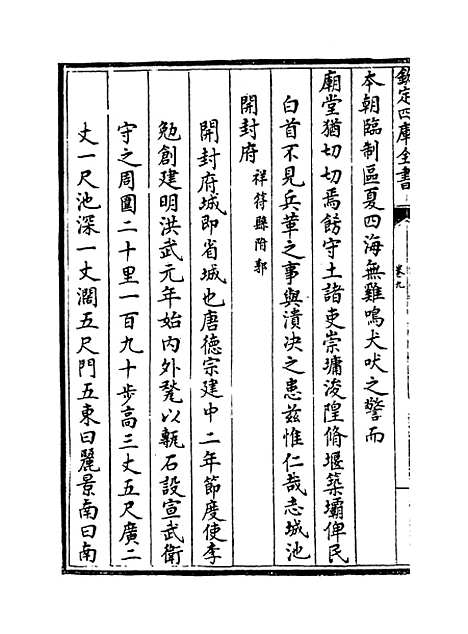 欽定四庫全書
卷九
本朝臨制區夏四海無雞鳴犬吠之警而
廟堂猶切切焉飭守土諸吏崇墉浚隍脩堰築壩俾民
白首不見兵革之事與潰決之患茲惟仁哉志城池
開封府祥符縣附郭
開封府城即省城也唐德宗建中二年節度使李
勉創建明洪武元年始内外甃以甎石設宣武衛
守之周圍二十里一百九十步高三丈五尺廣二
丈一尺池深一丈濶五尺門五東曰麗景南曰南